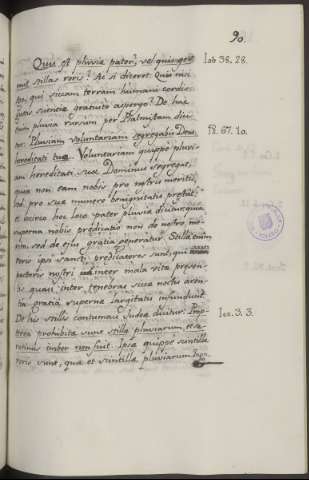 90.
Quis est pluviæ pater? vel quis genu- Iob 38. 28.
it stillas roris? Ac si diceret: Quis nisi
ego, qui siccam terram humani cordis
guttis scientiæ gratuito aspergo? De hac
enim pluvia rursum per Psalmistam dici-
tur: Pluviam voluntariam segregabis Deus Ps. 67. 10.
hæreditati tuæ. Voluntariam quippe pluvi-
am hereditati suæ Dominus segregat,
quia non eam nobis pro nostris meritis,
sed pro suæ munere benignitatis præstat.
Et idcirco hoc loco pater pluviæ dicitur, quia
superna nobis prædicatio non de nostro me-
rito, sed de ejus gratia generatur. Stillæ enim
roris ipsi sancti prædicatores sunt, qui
pectoris nostri inter mala vitæ præsen-
tis quasi inter tenebras siccæ noctis aren-
tia gratia supernæ largitatis infundunt.
De his stillis contumaci Judææ dicitur: Quam- Ier. 3. 3.
prohibitæ sunt stillæ pluviarum, et se-
rotinus imber non fuit. Ipsæ quippe stillæ
roris sunt, quæ et stillæ pluviarum.